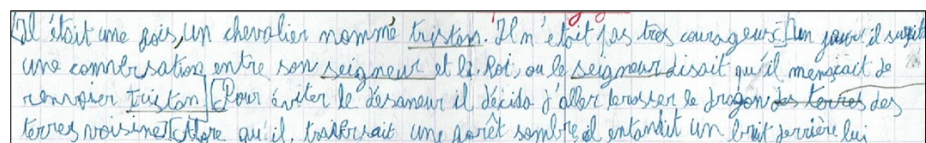 [Il était une fois, un chevalier nommé tristan. Il n'était pas tres courageux.] [un jour il surprit
une conversation entre son seigneur et le Roi, ou le seigneur disait qu'il menaçait de
renvoier tristan.] [Pour éviter le désaneur il décida d'aller terasser le dragon des terres des
terres voisines] [Alore qu'il, traversait une forêt sombre il entandit un bruit derrière lui